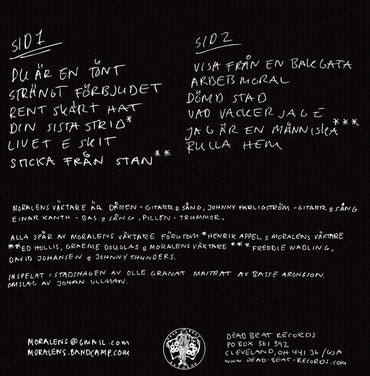 SID 1
DU ÄR EN TÖNT
STRÄNGT FÖRBJUDET
RENT SKÄRT HAT
DIN SISTA STRID*
LIVET E SKIT
STICKA FRÅN STAN**
SID 2
VISA FRÅN EN BAKGATA
ARBEB MORAL
DÖMD STAD
VAD VACKER JAG É
JAG ÄR EN MÄNNISKA***
RULLA HEM
MORALENS VÄKTARE ÄR DÅREN - GITARR & SÅNG, JOHNNY FARLIGSTRÖM - GITARR & SÅNG
EINAR KANTH - BAS & SÅNG, PILLEN - TRUMMOR.
ALLA SPÅR AV MORALENS VÄKTARE FÖRUTOM *HENRIK APPEL & MORALENS VÄKTARE
**ED HOLLIS, GRAEME DOUGLAS & MORALENS VÄKTARE ***FREDDIE WADLING,
DAVID JOHANSEN & JOHNNY THUNDERS.
INSPELAT I STADSHAGEN AV OLLE GRANAT MASTRAT AV BASSE ARONSSON.
OMSLAG AV JOHAN ULLMAN.
MORALENS@GMAIL.COM
MORALENS.BANDCAMP.COM
DEAD BEAT RECORDS
PO BOX 361 392
CLEVELAND, OH 441 36 / USA
WWW.DEAD-BEAT-RECORDS.COM